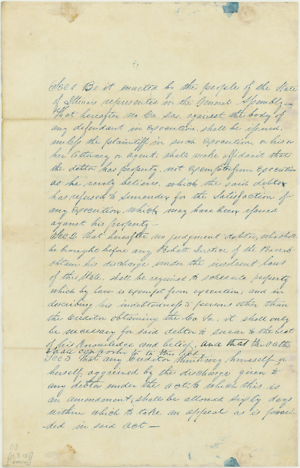 Sec 1 Be it enacted by the people of the State
of Illinois represented in the General Assembly—
That hereafter no Ca Sa. against the body of
any defendant in execution shall be issued,
unless the plaintiff in such execution, or his or
her attorney or agent, shall make affidavit that
the debtor has property, not exempt from execution
as he verily believes, which the said debtor
has refused to surrender for the satisfaction of
any execution, which may have been issued
against his property—
Sec 2. That hereafter no judgment debtor, who shall
be brought before any Probate Justice of the Peace to
obtain his discharge under the insolvent laws
of this State, shall be required to schedule property
which by law is exempt from execution, and in
describing his indebtedness to persons other than
the creditor obtaining the Ca Sa. it shall only
be necessary for said debtor to swear to the best
of his knowledge and belief, and that the oath
shall conform to this act
Sec 3 That any creditor thinking himself or
herself aggrieved by the discharge given to
any debtor under the act, to which this is
an amendment, shall be allowed sixty days
within which to take an appeal as is provi-
ded in said act—